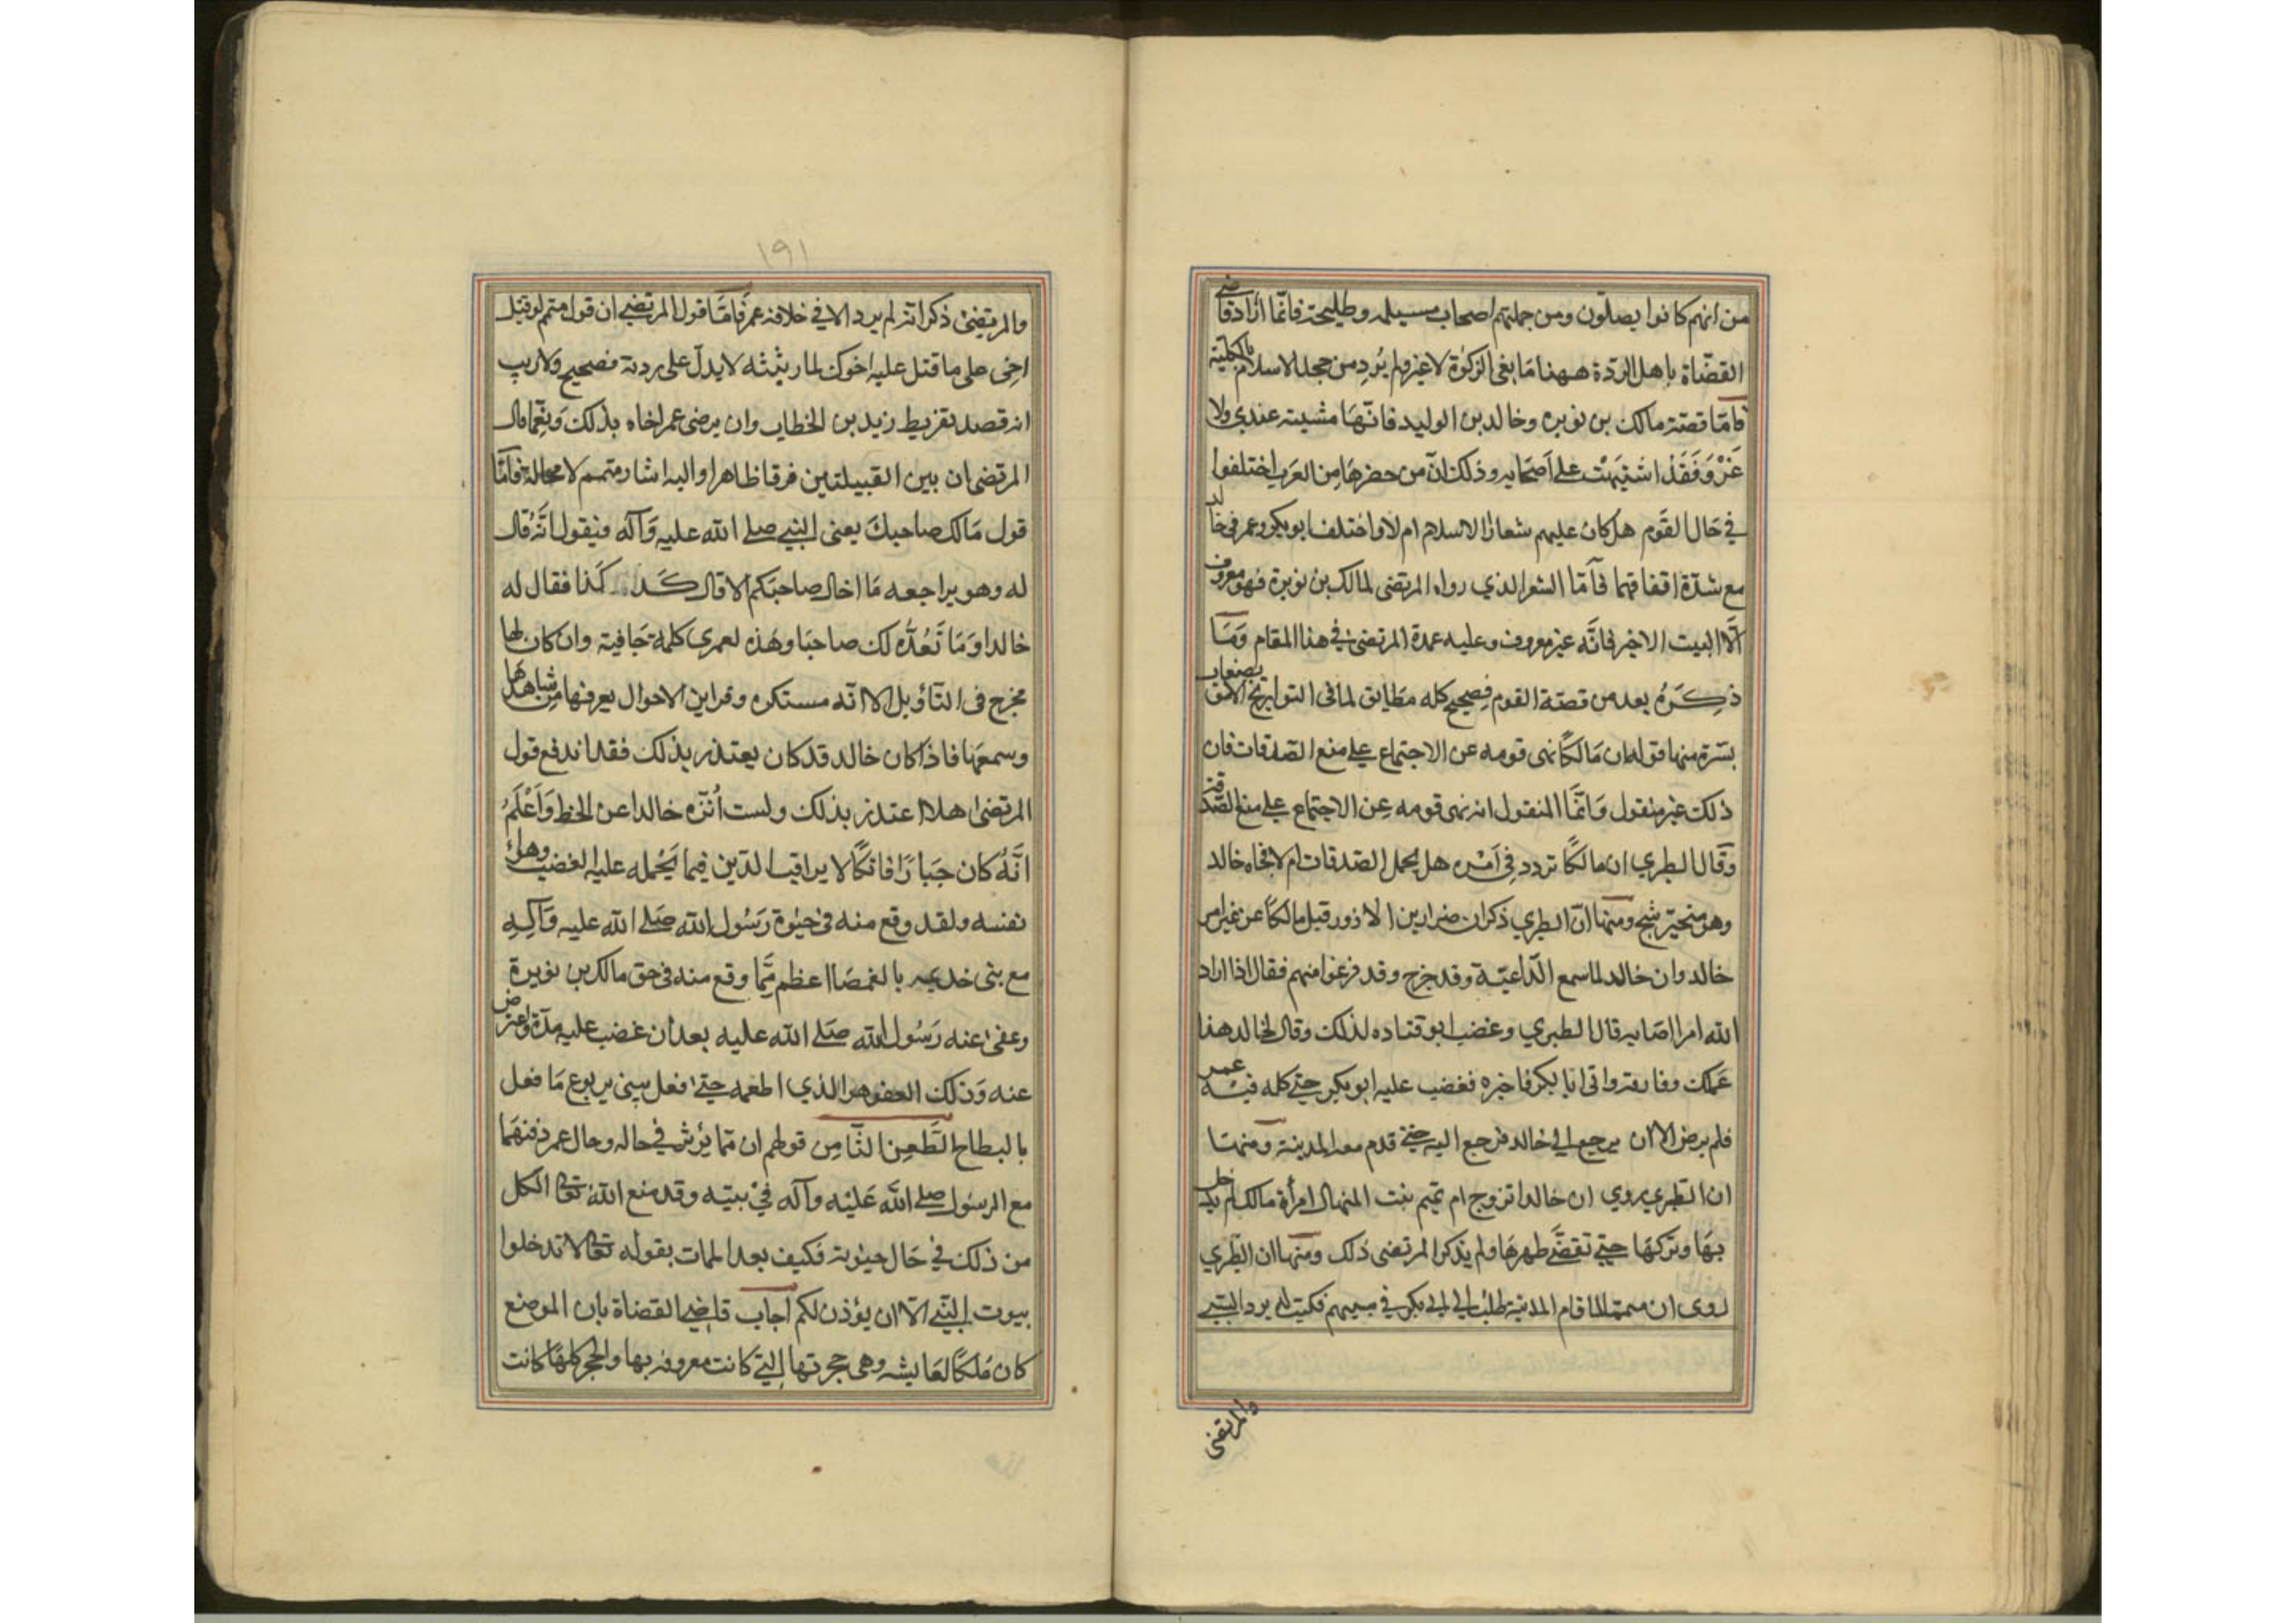 من انهم كانوا يصلّون ومن جملتهم اصحاب مسيلمه وطليحة فانّما اراد قاضي
القضاة باهل الردّة ههنا مانعي الزكوٰة لاغير ولم يُرِد من جحد الاسلام بالكلية
فامّا قصّة مالك بن نويره وخالد بن الوليد فانّها مشتبهة عندي ولا
غَرْوَ فَقَدْ اشتبهَتْ على اصحابه وذلك انّ من حضرها من العرب اختلفوا
في حَال القَوم هل كان عليهم شعار الاسلام ام لا واختلف ابو بكر وعمر في خالد
مع شدّة اتفاقهما فأمّا الشعر الذي رواه المرتضى لمالك بن نويرة فهو معروف
الّا البيت الاخير فانّه غير معروف وعليه عمدة المرتضى في هذا المقام وَمَا
ذكَرَهُ بعد من قصّة القوم فصحيح كله مطابق لما في التواريخ الا مواضع
يسيرة منها قوله ان مَالكًا نهى قومه عن الاجتماع على منع الصّدقات فان
ذلك غير منقول وَانّما المنقول انه نهى قومه عن الاجتماع على منع الصّدقة
وقال الطبري ان مالكًا تردد في اَمْرِه هل يحمل الصّدقات ام لا فجاه خالد
وهو متحيّر شج ومنها انّ الطبري ذكر ان ضرار بن الازور قتل مالكًا عن غير امر
خالد وان خالد لما سمع الدّاعيّة وقد خرج وقد فرغوا منهم فقال اذا اراد
الله امرا اصابه قال الطبري وغضب ابو قتاده لذلك وقال لخالد هذا
عَمَلك وفارقه واتى ابا بكر فاخبره فغضب عليه ابو بكر حتى كلمه فيه عمر
فلم يرض الا ان يرجع الى خالد فرجع اليه حتى قدم معه المدينة ومنها
ان الطّبري يروي ان خالدا تزوج ام تميم بنت المنهال امرأة مالك لم يدخل
بهَا وتركهَا حتى تقضَّى طهرهَا ولم يذكر المرتضى ذلك ومنها ان الطّبري
روى ان متمما لما قدم المدينة طلب الى ابي بكر في سبيهم فكتب له برد السبي
والمرتضى
١٩١
والمرتضىٰ ذكر انه لم يرد الا في خلافة عمر فامّا قول المرتضى ان قول متمم لو قتل
اخي على ما قتل عليه اخوك لما رثيثه لا يدلّ على ردته فصحيح ولا ريب
انه قصد تقريظ زيد بن الخطاب وان يرضى عمر اخاه بذلك وَنِعْمَا قال
المرتضى ان بين القبيلتين فرقا ظاهرا واليه اشار متمم لا محالة فامّا
قول مَالك صاحبكَ يعنى النبي صلى الله عليه وَآله فيقول انّه قال
له وهو يراجعه مَا اخال صاحبَكم الا قال كَذا كَذا فقال له
خالد او مَا تَعُدُّه لك صاحبَا وهَذه لعمرى كلمة جَافية وان كان لها
مخرج في التأويل الا انّه مستكره وقراين الاحوال يعرفها من شاهدها
وسمعَها فاذا كان خالد قد كان يعتذر بذلك فقد اندفع قول
المرتضىٰ هلا اعتذر بذلك ولست اُنزّه خالدا عن الخطا وَاَعْلَمُ
انَّهُ كان جَبارًا فاتكًا لا يراقب الدّين فيما يَحْمله عليه الغضب وهواء
نفسه ولقد وقع منه في حيٰوة رَسُول الله صَلى الله عليه وَآلِهِ
مع بنى خديمه بالغمصَا اعظم ممّا وقع منه في حق مالك بن نويرة
وعفىٰ عنه رَسُول الله صَلى الله عليه بعد ان غضب عليه مدّة واعرض
عنه وَذلك العفو هو الذي اطعمه حتىٰ فعل ببني يربوع مَا فعل
بالبطاح الطَّعِن الثَّامِن قولهم ان ممّا يؤثر في حاله وحال عمر دفنهَما
مع الرسُول صلى الله عَليْه وآله في بيته وقد منع الله تعالى الكل
من ذلك في حَال حيٰوته فكيف بعد الممات بقوله تعالى لا تدخلوا
بيوت النبي الّا ان يؤذن لكم اجاب قاضي القضاة بان الموضع
كان مُلكًا لعَايشه وهي حجرتها التي كانت معروفه بها والحجر كلهَا كانت